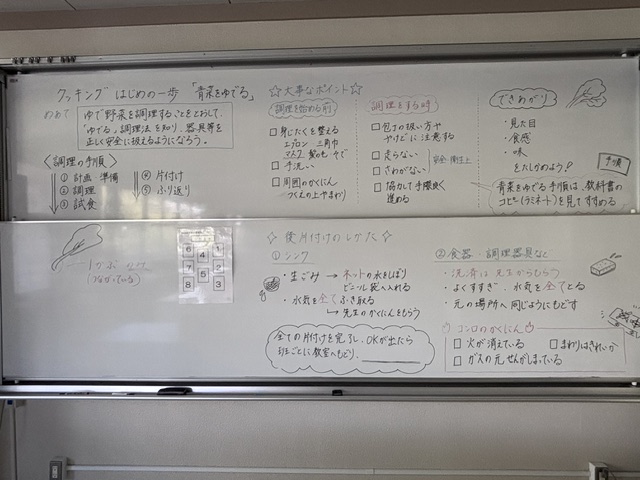 クッキング はじめの一歩 「青菜をゆでる」
めあて
ゆで野菜を調理することをとおして、
「ゆでる」調理法を知り、器具等を
正しく安全に扱えるようになろう。
〈調理の手順〉
① 計画 準備
② 調理
③ 試食
④ 片付け
⑤ ふり返り
☆大事なポイント☆
調理を始める前
□ 身じたくを整える
エプロン 三角巾
マスク 髪の毛 そで
□ 手洗い
□ 周囲のかくにん
つくえの上やまわり
調理をする時
□ 包丁の扱い方や
やけどに注意する
□ 走らない
□ さわがない
安全・衛生上
□ 協力して手際良く
進める
できあがり
・見た目
・食感
・味
をたしかめよう!
手順
青菜をゆでる手順は、教科書の
コピー(ラミネート)を見てすすめる
1かぶ
(つながっている)
6 4 1
7 5 2
8 3
☆ 後片付けのしかた ☆
① シンク
・生ごみ → ネットの水をしぼり
ビニール袋へ入れる
・水気を全てふき取る
→ 先生のかくにんをもらう
全ての片付けを完了し、OKが出たら
班ごとに教室へもどり、
② 食器・調理器具など
・洗剤は先生からもらう
・よくすすぎ、水気を全てとる
・元の場所へ同じようにもどす
コンロのかくにん
□ 火が消えている
□ まわりはきれいか
□ ガスの元せんがしまっている